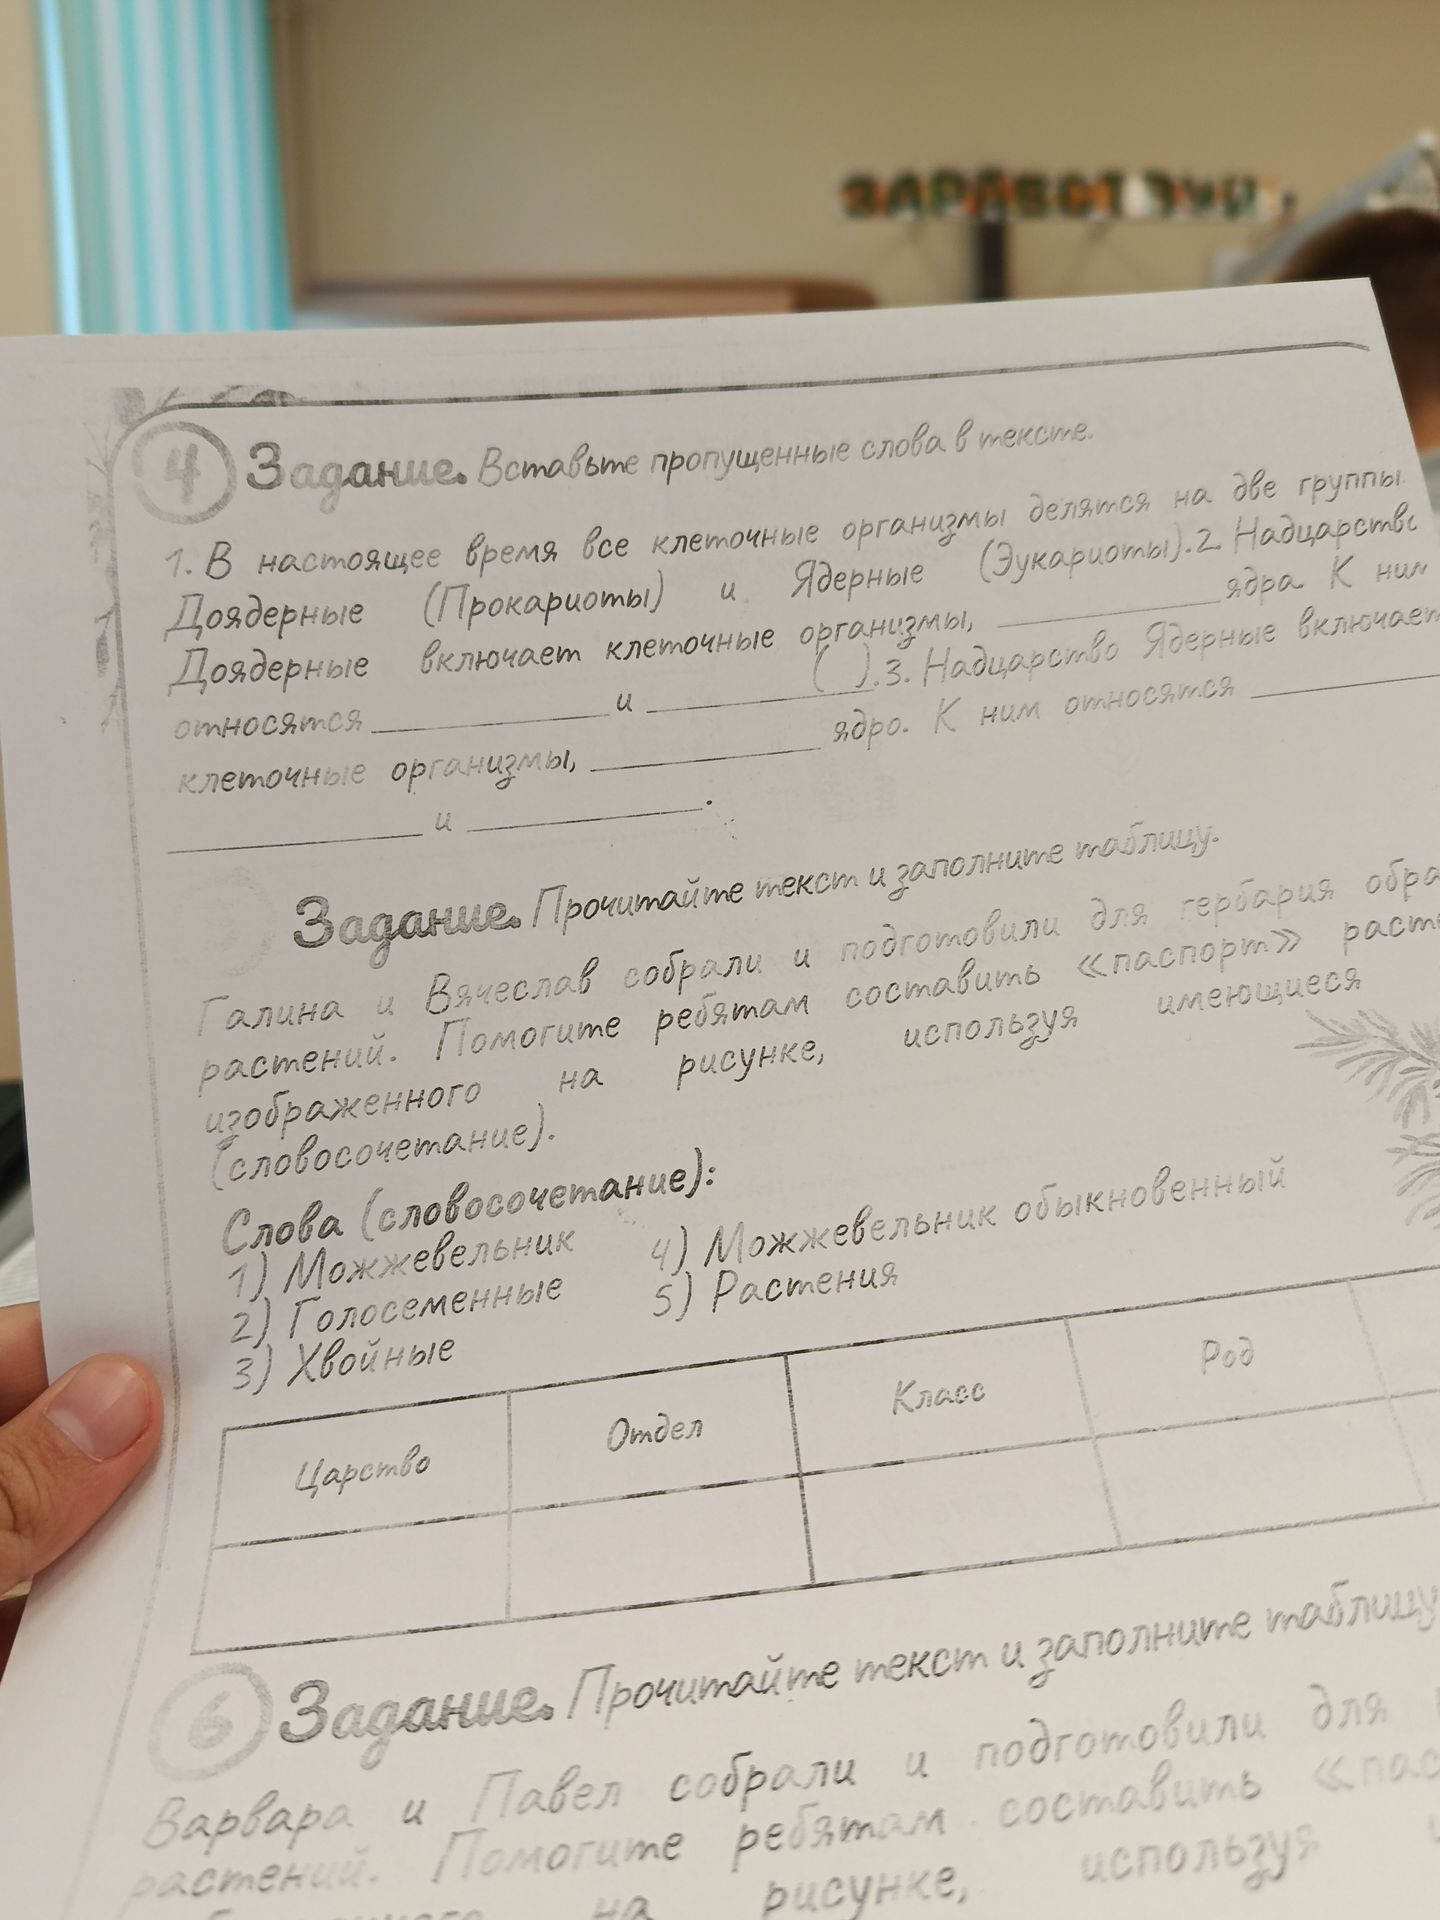 ЗДРАВСТВУЙ
4 Задание. Вставьте пропущенные слова в тексте.
1. В настоящее время все клеточные организмы делятся на две группы.
Доядерные (Прокариоты) и Ядерные (Эукариоты).2. Надцарство
Доядерные включает клеточные организмы, ____________ ядра. К ним
относятся ____________ и ____________ ( ).3. Надцарство Ядерные включает
клеточные организмы, ____________ ядро. К ним относятся ____________
____________ и ____________.
Задание. Прочитайте текст и заполните таблицу.
Галина и Вячеслав собрали и подготовили для гербария
растений. Помогите ребятам составить «паспорт»
изображенного на рисунке, используя имеющиеся
(словосочетание).
Слова (словосочетание):
1) Можжевельник 4) Можжевельник обыкновенный
2) Голосеменные 5) Растения
3) Хвойные
Царство Отдел Класс Род
6 Задание. Прочитайте текст и заполните таблицу
Варвара и Павел собрали и подготовили для
растений. Помогите ребятам составить
на рисунке, используя